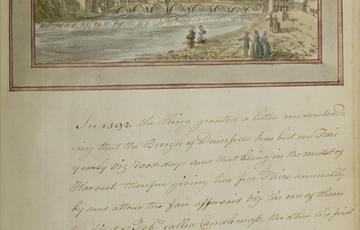 In 1592 the King granted a letter understand
ing that the Burgh of Dumfries has but one Fair
yearly viz Roodday and that being in the midst of
Harvest therefore giving two free Fairs annually
by and attour the fair afforsaid viz the one of them
called Candlemass, the other the first